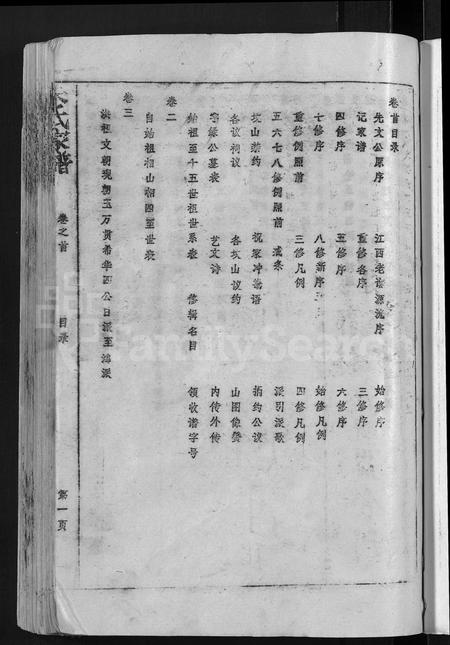 卷首目录
先文公原序 江西老谱源流序 始修序
记家谱 重修各序 三修序
四修序 五修序 六修序
七修序 八修新序 始修凡例
重修例照前 三修凡例 四修凡例
五六七八修例照前 戒条 派引派歌
坟山禁约 祝家冲 捐约公议
各议祠议 各坟山议约 山图像赞
字缘公墓表 艺文诗 内传外传
始祖至十五世祖世系表 修辑名目 领收谱字号
卷二
自始祖相山相四至世表
卷三
洪祖文朝现朝玉万贯希华四公日派至派
氏家谱
卷之首
目录
第一页
FamilySearch